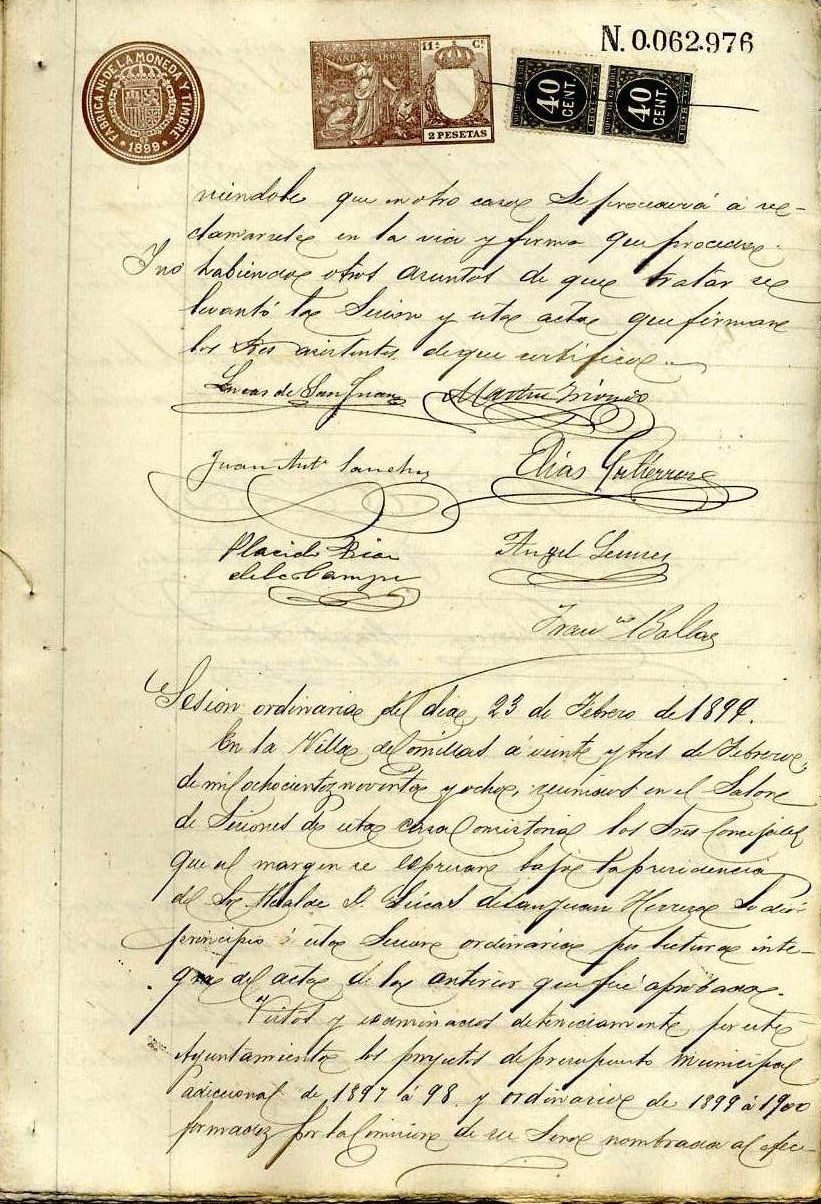 N. 0.062.976
FABRICA Nal DE LA MONEDA Y TIMBRE
1899
11.a Cl.
2 PESETAS
40 CENT
40 CENT.
niendole que en otro caso se procederá á re-
clamarsele en la via y forma que procede.
Y no habiendo otros asuntos de que tratar se
levantó la Sesion y esta acta que firman
los Sres asistentes de que certifico.
Lucas de San Juan
Juan Ant.o Sanchez Elias Gutierrez
Placido Diaz Angel
de la Campa
Fran.co
Sesion ordinaria del dia 23 de Febrero de 1899.
En la Villa de Comillas á veinte y tres de Febrero,
de mil ochocientos noventa y ocho, reunidos en el Salon
de Sesiones de esta casa Consistorial los Sres Concejales
que al margen se espresan bajo la presidencia
del Sr Alcalde D. Lucas de San Juan Herrera se dió
principio á esta Sesion ordinaria por lectura inte-
gra del acta de la anterior que fué aprobada.
Vistos y examinados detenidamente por este
Ayuntamiento los proyectos de presupuesto municipal
adiccional de 1897 á 98 y ordinario de 1899 á 1900
formados por la Comision de su Seno nombrada al efec-